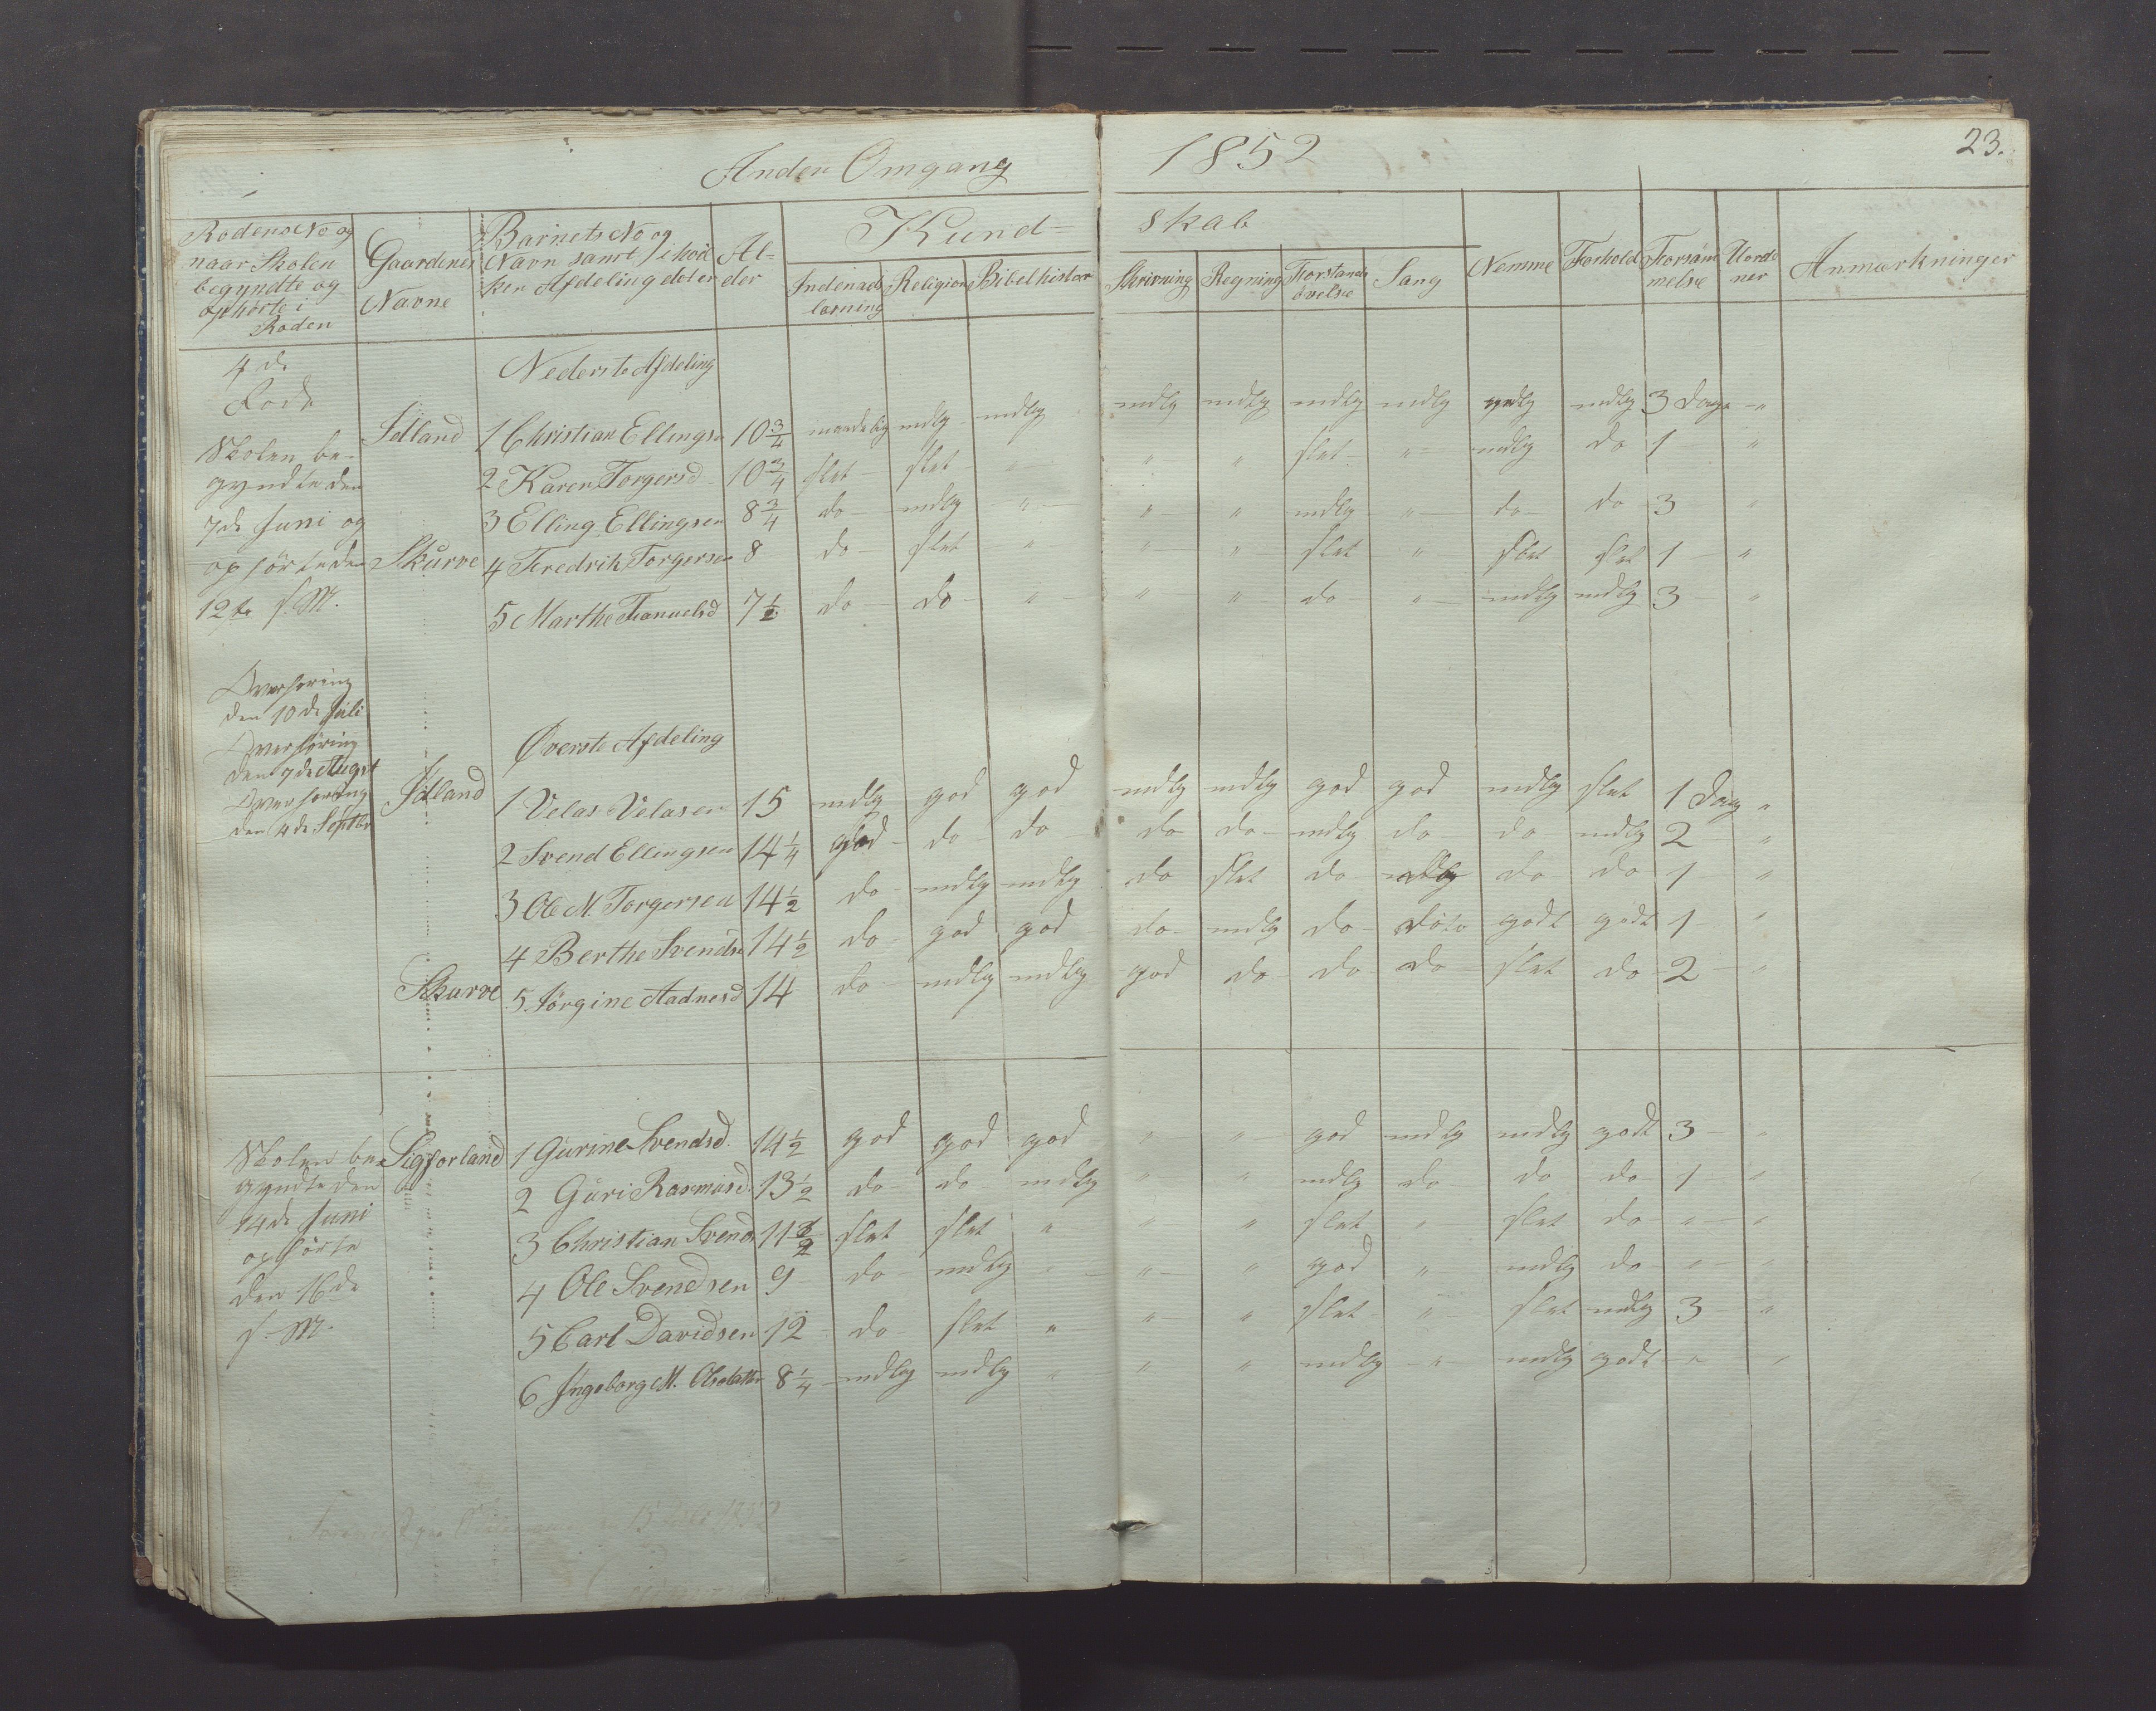 Anden Omgang 1852 23.
Rodens No og naar Skolen begyndte og ophörte i Roden
Gaardenes Navne
Barnets No og Navn samt i hvilken Afdeling det er
Alder
Kundskab
Indenadslæsning Religion Bibelhistor Skrivning Regning Forstandsövelse Sang
Nemme Forhold Forsömmelse Uordener Anmærkninger
4de Rode
Nederste Afdeling
Skolen begyndte den 7de Juni og ophörte den 12te s. M.
Idland 1 Christian Ellingsen 10 3/4 maadelig mdlg mdlg mdlg mdlg mdlg mdlg mdlg mdlg 3 Dage "
2 Karen Torgersd 10 3/4 slet slet " " " slet " mdlg do 1 "
3 Elling Ellingsen 8 3/4 do mdlg " " " mdlg " do do 3 "
Skurve 4 Fredrik Torgersen 8 do slet " " " slet " slet slet 1 "
5 Marthe 7 1/2 do do " " " do " mdlg mdlg 3 "
Overhöring den 10de Juli
Overhöring den 7de Augst
Overhöring den 4de Septbr
Øverste Afdeling
Idland 1 Velas Velasen 15 mdlg god god mdlg mdlg god god mdlg slet 1 Dag "
2 Svend Ellingsen 14 1/4 god do do do do mdlg do do mdlg 2 "
3 Ole M. Torgersen 14 1/2 do mdlg mdlg do slet do mdlg do do 1 "
4 Berthe Svendsd 14 1/2 do god god do mdlg do dito godt godt 1 "
Skurve 5 Jörgine Aadnesd 14 do mdlg mdlg god do do do slet do 2 "
Skolen begyndte den 14de Juni ophörte den 16de s. M.
Sigforland 1 Gurine Svendsd. 14 1/2 god god god " " god mdlg mdlg godt 3 "
2 Guri Rasmusd. 13 1/2 do do mdlg " " mdlg do do do 1 "
3 Christian Svends 11 1/2 slet slet " " " slet " slet do " "
4 Ole Svendsen 9 do mdlg " " " god " mdlg do " "
5 Carl Davidsen 12 do slet " " " slet " slet mdlg 3 "
6 Ingeborg M. Olsdatter 8 1/4 mdlg mdlg " " " mdlg " mdlg godt " "